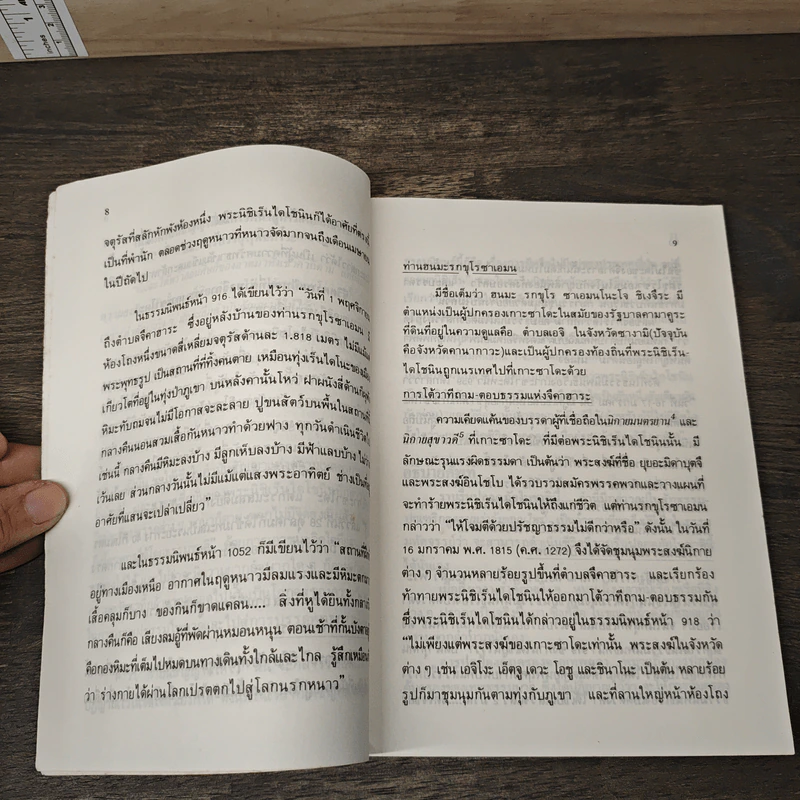 inches
8
จตุรัสที่สลักหักพังห้องหนึ่ง พระนิชิเร็นไดโชนินก็ได้อาศัยที่ตรงนี้
เป็นที่พำนัก ตลอดช่วงฤดูหนาวที่หนาวจัดมากจนถึงเดือนเมษายน
ในปีถัดไป
ในธรรมนิพนธ์หน้า 916 ได้เขียนไว้ว่า “วันที่ 1 พฤศจิกายน
ถึงตำบลจึคาฮาระ ซึ่งอยู่หลังบ้านของท่านรกขุโรซาเอมน
ห้องโถงหนึ่งขนาดสี่เหลี่ยมจตุรัสด้านละ 1.818 เมตร ไม่มีแม้แต่
พระพุทธรูป เป็นสถานที่ที่ทิ้งคนตาย เหมือนทุ่งเร็นไดโนะของเมือง
เกียวโตที่อยู่ในทุ่งป่าภูเขา บนหลังคานั้นโหว่ ฝาผนังสี่ด้าน
หิมะทับถมจนไม่มีโอกาสจะละลาย ปูขนสัตว์บนพื้นในสถานที่
กลางคืนนอนสวมเสื้อกันหนาวทำด้วยฟาง ทุกวันดำเนินชีวิต
เช่นนี้ กลางคืนมีหิมะลงบ้าง มีลูกเห็บลงบ้าง มีฟ้าแลบบ้าง
เว้นเลย ส่วนกลางวันนั้นไม่มีแม้แต่แสงพระอาทิตย์ ช่างเป็นที่
อาศัยที่แสนจะเปล่าเปลี่ยว”
และในธรรมนิพนธ์หน้า 1052 ก็มีเขียนไว้ว่า “สถานที่นี้
อยู่ทางเมืองเหนือ อากาศในฤดูหนาวมีลมแรงและมีหิมะตก
เสื้อคลุมก็บาง ของกินก็ขาดแคลน.... สิ่งที่หูได้ยินทั้งกลางวัน
กลางคืนก็คือ เสียงลมอู้ที่พัดผ่านหมอนหนุน ตอนเช้าที่กั้นบังตา
คือกองหิมะที่เต็มไปหมดบนทางเดินทั้งใกล้และไกล รู้สึกเหมือน
ว่า ร่างกายได้ผ่านโลกเปรตตกไปสู่โลกนรกหนาว”
9
ท่านฮนมะรกขุโรซาเอมน
มีชื่อเต็มว่า ฮนมะ รกขุโร ซาเอมนโนะโจ ชิเงจึระ มี
ตำแหน่งเป็นผู้ปกครองเกาะซาโดะในสมัยของรัฐบาลคามาคูระ
ที่ดินที่อยู่ในความดูแลคือ ตำบลเอจิ ในจังหวัดซางามิ(ปัจจุบัน
คือจังหวัดคานากาวะ)และเป็นผู้ปกครองท้องถิ่นที่พระนิชิเร็น-
ไดโชนินถูกเนรเทศไปที่เกาะซาโดะด้วย
การโต้วาทีถาม-ตอบธรรมแห่งจึคาฮาระ
ความเคียดแค้นของบรรดาผู้ที่เชื่อถือในนิกายมนตรยาน4 และ
นิกายสุขาวดี5 ที่เกาะซาโดะ ที่มีต่อพระนิชิเร็นไดโชนินนั้น มี
ลักษณะรุนแรงผิดธรรมดา เป็นต้นว่า พระสงฆ์ที่ชื่อ ยุยอะมิดาบุตจึ
และพระสงฆ์อินโชโบ ได้รวบรวมสมัครพรรคพวกและวางแผนที่
จะทำร้ายพระนิชิเร็นไดโชนินให้ถึงแก่ชีวิต แต่ท่านรกขุโรซาเอมน
กล่าวว่า “ให้โจมตีด้วยปรัชญาธรรมไม่ดีกว่าหรือ” ดังนั้น ในวันที่
16 มกราคม พ.ศ. 1815 (ค.ศ. 1272) จึงได้จัดชุมนุมพระสงฆ์นิกาย
ต่าง ๆ จำนวนหลายร้อยรูปขึ้นที่ตำบลจึคาฮาระ และเรียกร้อง
ท้าทายพระนิชิเร็นไดโชนินให้ออกมาโต้วาทีถาม-ตอบธรรมกัน
ซึ่งพระนิชิเร็นไดโชนินได้กล่าวอยู่ในธรรมนิพนธ์หน้า 918 ว่า
“ไม่เพียงแต่พระสงฆ์ของเกาะซาโดะเท่านั้น พระสงฆ์ในจังหวัด
ต่าง ๆ เช่น เอจิโงะ เอ็ตจู เดวะ โอชู และชินาโนะ เป็นต้น หลายร้อย
รูปก็มาชุมนุมกันตามทุ่งกับภูเขา และที่ลานใหญ่หน้าห้องโถง